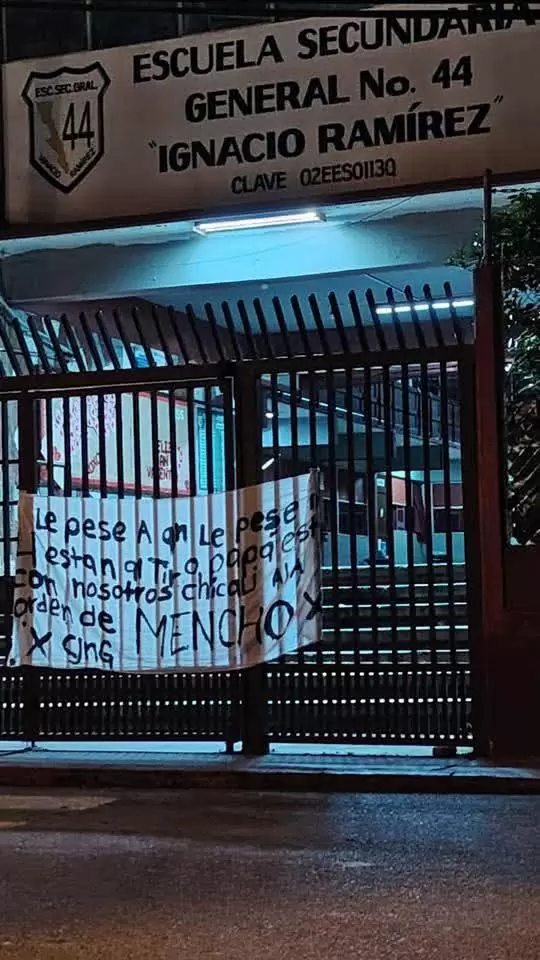 ESCUELA SECUNDARIA
GENERAL No. 44
"IGNACIO RAMÍREZ"
CLAVE 02EES0113Q
ESC.SEC.GRAL.
44
IGNACIO RAMIREZ
Le pese A qn Le pese
estan a Tiro papa est
con nosotros chicali AlA
orden de MENCHO X
X CJNG